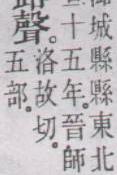 城縣縣東北
十五年。晉師
聲。洛故切。
五部。